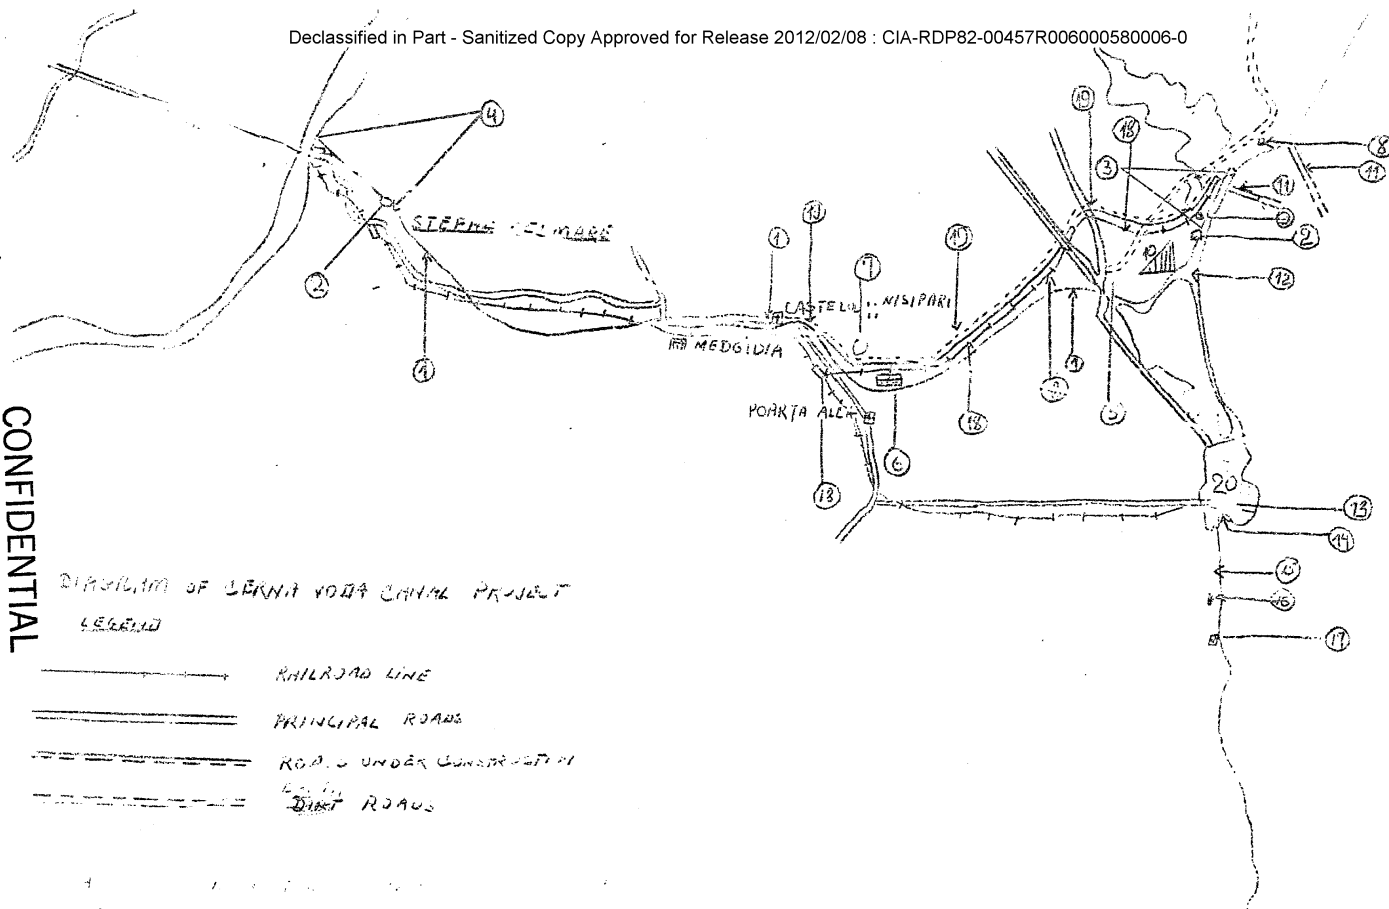 Declassified in Part - Sanitized Copy Approved for Release 2012/02/08 : CIA-RDP82-00457R006000580006-0
4
19
18
8
3
11
11
2
12
STEFAN CEL MARE
1
19
7
19
10
2
CASTELU
NISIPARI
MEDGIDIA
1
1
5
POARTA ALBA
18
6
18
20
13
14
15
16
17
CONFIDENTIAL
DIAGRAM OF CERNA VODA CANAL PROJECT
LEGEND
RAILROAD LINE
PRINCIPAL ROADS
ROADS UNDER CONSTRUCTION
DIRT ROADS